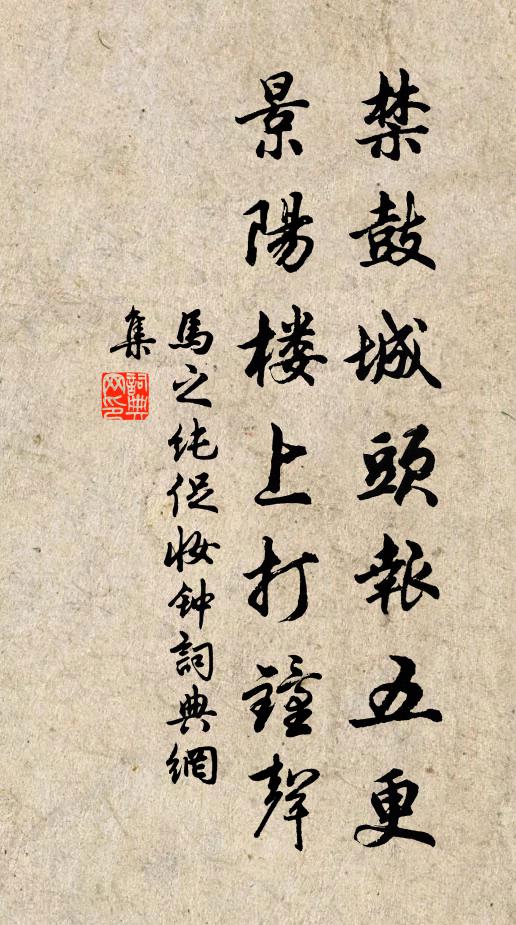 禁鼓城頭報五更
景陽楼上打鐘聲
馬之纯促妝钟詞典網
集
詞典网印